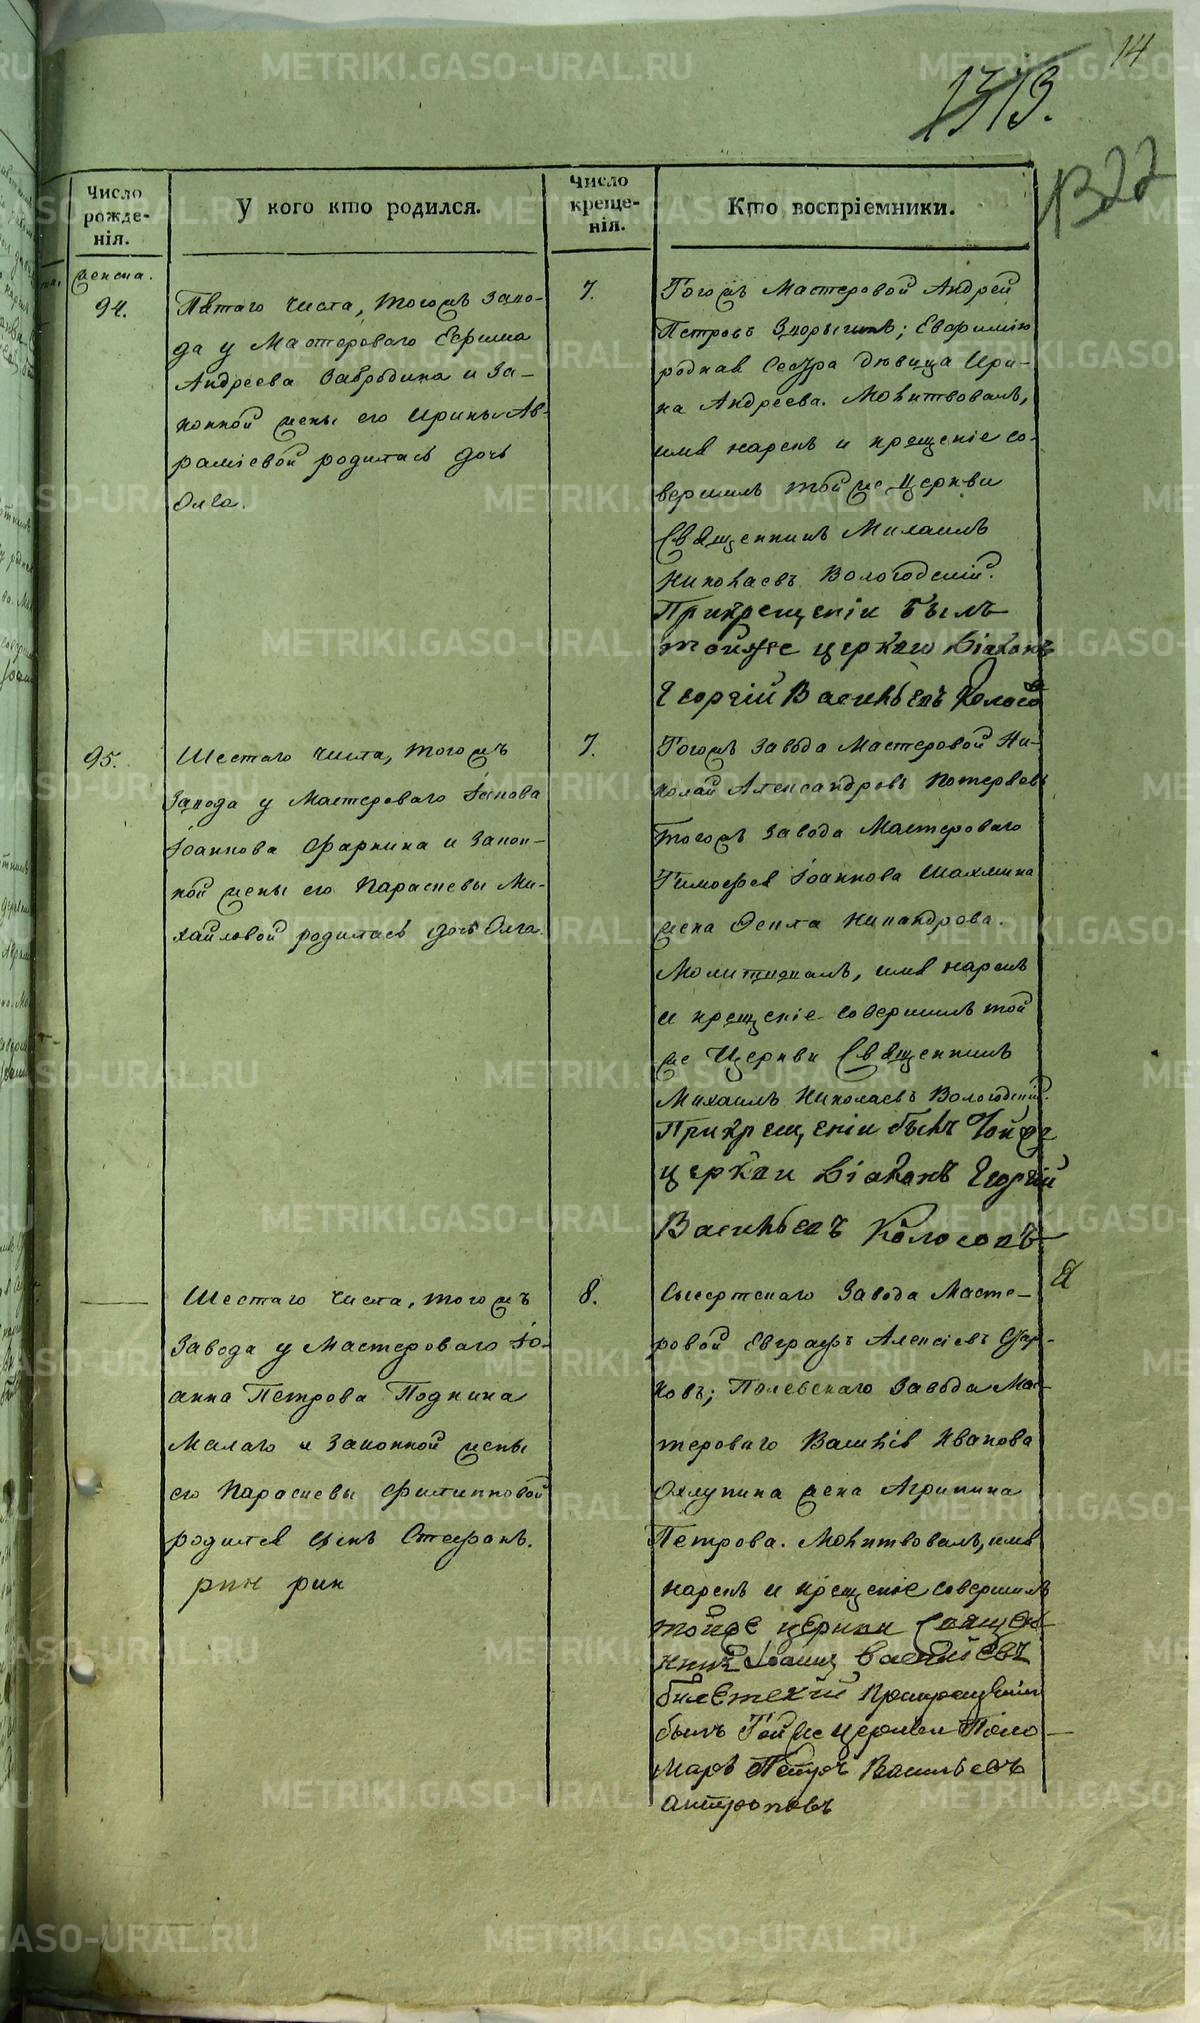 14
1373.
1322
Число
рожде-
нія.
У кого кто родился.
Число
креще-
нія.
Кто воспріемники.
женска.
94.
Пятаго числа, тогожъ заво-
да у Мастероваго Ефима
Андреева Забродина и за-
конной жены его Ирины Ав-
раміевой родилась дочь
Олга.
7.
Тогожъ Мастеровой Андрей
Петровъ
родная Сестра дѣвица Ири-
на Андреева. Молитвовалъ,
имя нарекъ и крещеніе со-
вершилъ той же Церкви
Священникъ Михаилъ
Николаевъ Вологодскій.
Прикрещеніи былъ
тойже церкви Діаконъ
Георгій Васильевъ Колосо
95.
Шестаго числа, тогожъ
Завода у Мастероваго
Іоаннова Фарнина и Закон-
ной жены его Параскевы Ми-
хайловой родилась дочь Олга.
7.
Тогожъ завода Мастеровой Ни-
колай Александровъ
тогожъ завода Мастероваго
Тимофея Іоаннова Шахмина
жена Фекла Никандрова.
Молитвовалъ, имя нарекъ
и крещеніе совершилъ той
же Церкви Священникъ
Михаилъ Николаевъ Вологодскій.
Прикрещеніи былъ Тойже
церкви Діаконъ Георгій
Васильевъ Колосовъ
Шестаго числа, тогожъ
Завода у Мастероваго Іо-
анна Петрова Поднина
Малаго и Законной жены
его Параскевы Филипповой
родился сынъ Стефанъ.
рин рин
8.
Сысертскаго Завода Масте-
ровой Евграфъ Алексіевъ Стар-
ковъ; Полевскаго Завода Мас-
тероваго Василія Иванова
Охлупина жена Агрипина
Петрова. Молитвовалъ, имя
нарекъ и крещеніе совершилъ
тойже церкви Священ
никъ Іоаннъ Василіевъ
Прикрещеніи
былъ Тойже церкви Поно
марь Петръ Васильевъ
Антроповъ
METRIKI.GASO-URAL.RU